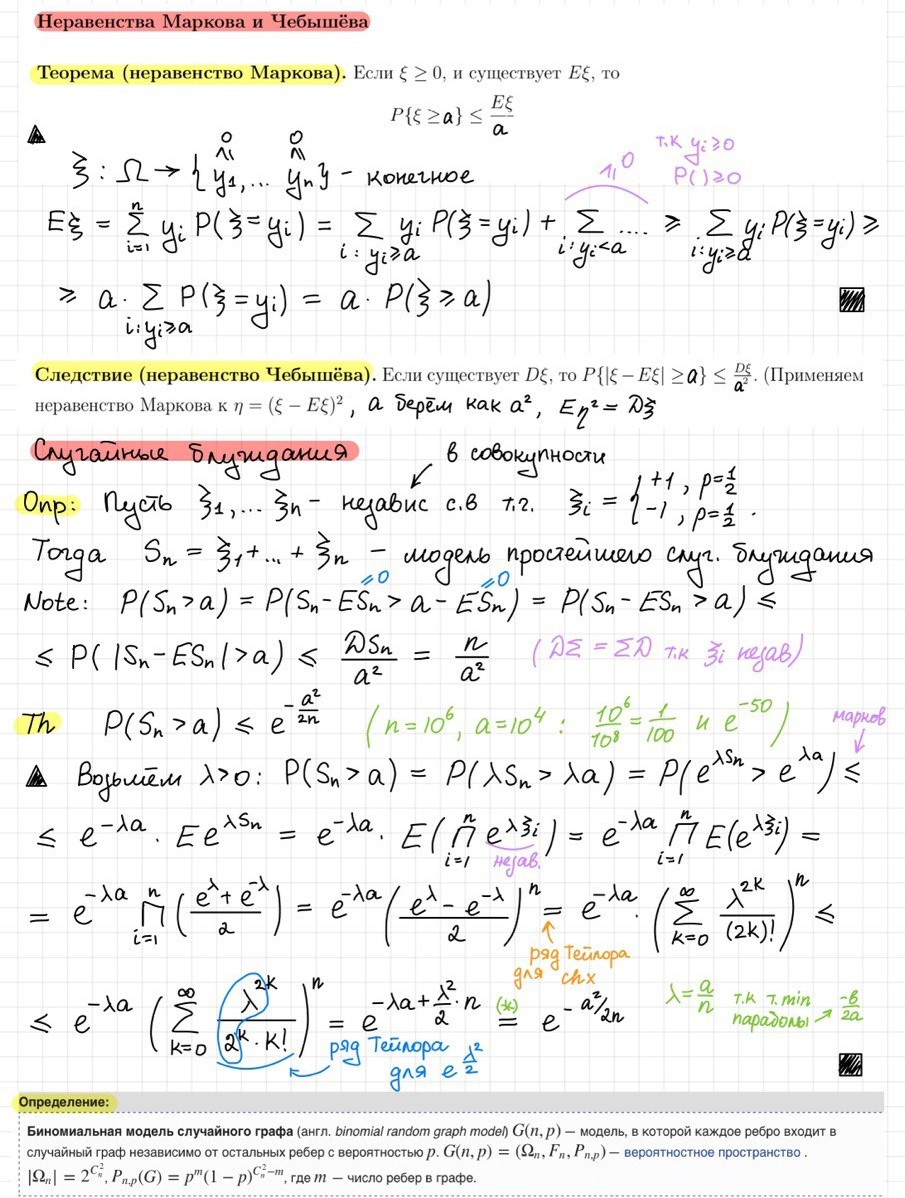 Неравенства Маркова и Чебышёва
Теорема (неравенство Маркова). Если ξ ≥ 0, и существует Eξ, то
P{ξ ≥ a} ≤ Eξ/a
▲
0 0
ξ : Ω → {y₁,... yₙ} - конечное
≥ 0
т.к yᵢ ≥ 0
P() ≥ 0
Eξ = Σ_{i=1}^{n} yᵢ P(ξ = yᵢ) = Σ_{i: yᵢ ≥ a} yᵢ P(ξ = yᵢ) + Σ_{i: yᵢ < a} .... ≥ Σ_{i: yᵢ ≥ a} yᵢ P(ξ = yᵢ) ≥
≥ a · Σ_{i: yᵢ ≥ a} P(ξ = yᵢ) = a · P(ξ ≥ a)
Следствие (неравенство Чебышёва). Если существует Dξ, то P{|ξ − Eξ| ≥ a} ≤ Dξ/a². (Применяем
неравенство Маркова к η = (ξ − Eξ)², a берём как a², Eη² = Dξ
Случайные блуждания
в совокупности
Опр: Пусть ξ₁,... ξₙ - независ с.в т.ч. ξᵢ = { +1, p = 1/2
-1, p = 1/2 .
Тогда Sₙ = ξ₁ + ... + ξₙ - модель простейшего случ. блуждания
= 0 = 0
Note: P(Sₙ > a) = P(Sₙ - ESₙ > a - ESₙ) = P(Sₙ - ESₙ > a) ≤
≤ P(|Sₙ - ESₙ| > a) ≤ DSₙ/a² = n/a² (DΣ = ΣD т.к ξᵢ незав)
Th P(Sₙ > a) ≤ e^{-a²/2n} (n = 10⁶, a = 10⁴ : 10⁶/10⁸ = 1/100 и e⁻⁵⁰)
марков
▲ Возьмём λ > 0: P(Sₙ > a) = P(λSₙ > λa) = P(e^{λSₙ} > e^{λa}) ≤
≤ e^{-λa} · E e^{λSₙ} = e^{-λa} · E(Π_{i=1}^{n} e^{λξᵢ}) = e^{-λa} Π_{i=1}^{n} E(e^{λξᵢ}) =
незав.
= e^{-λa} Π_{i=1}^{n} ((e^λ + e^{-λ})/2) = e^{-λa} ((e^λ - e^{-λ})/2)^n = e^{-λa} · (Σ_{k=0}^{∞} λ^{2k}/(2k)!)^n ≤
ряд Тейлора
для chx
≤ e^{-λa} (Σ_{k=0}^{∞} λ^{2k}/(2^k · k!))^n = e^{-λa + λ²/2 · n} (*) = e^{-a²/2n}
λ = a/n т.к т.min
параболы → -b/2a
ряд Тейлора
для e^{λ²/2}
Определение:
Биномиальная модель случайного графа (англ. binomial random graph model) G(n, p) — модель, в которой каждое ребро входит в
случайный граф независимо от остальных ребер с вероятностью p. G(n, p) = (Ωₙ, Fₙ, Pₙ,ₚ) — вероятностное пространство .
|Ωₙ| = 2^{C_n^2}, P_{n,p}(G) = p^m(1 − p)^{C_n^2−m}, где m — число ребер в графе.